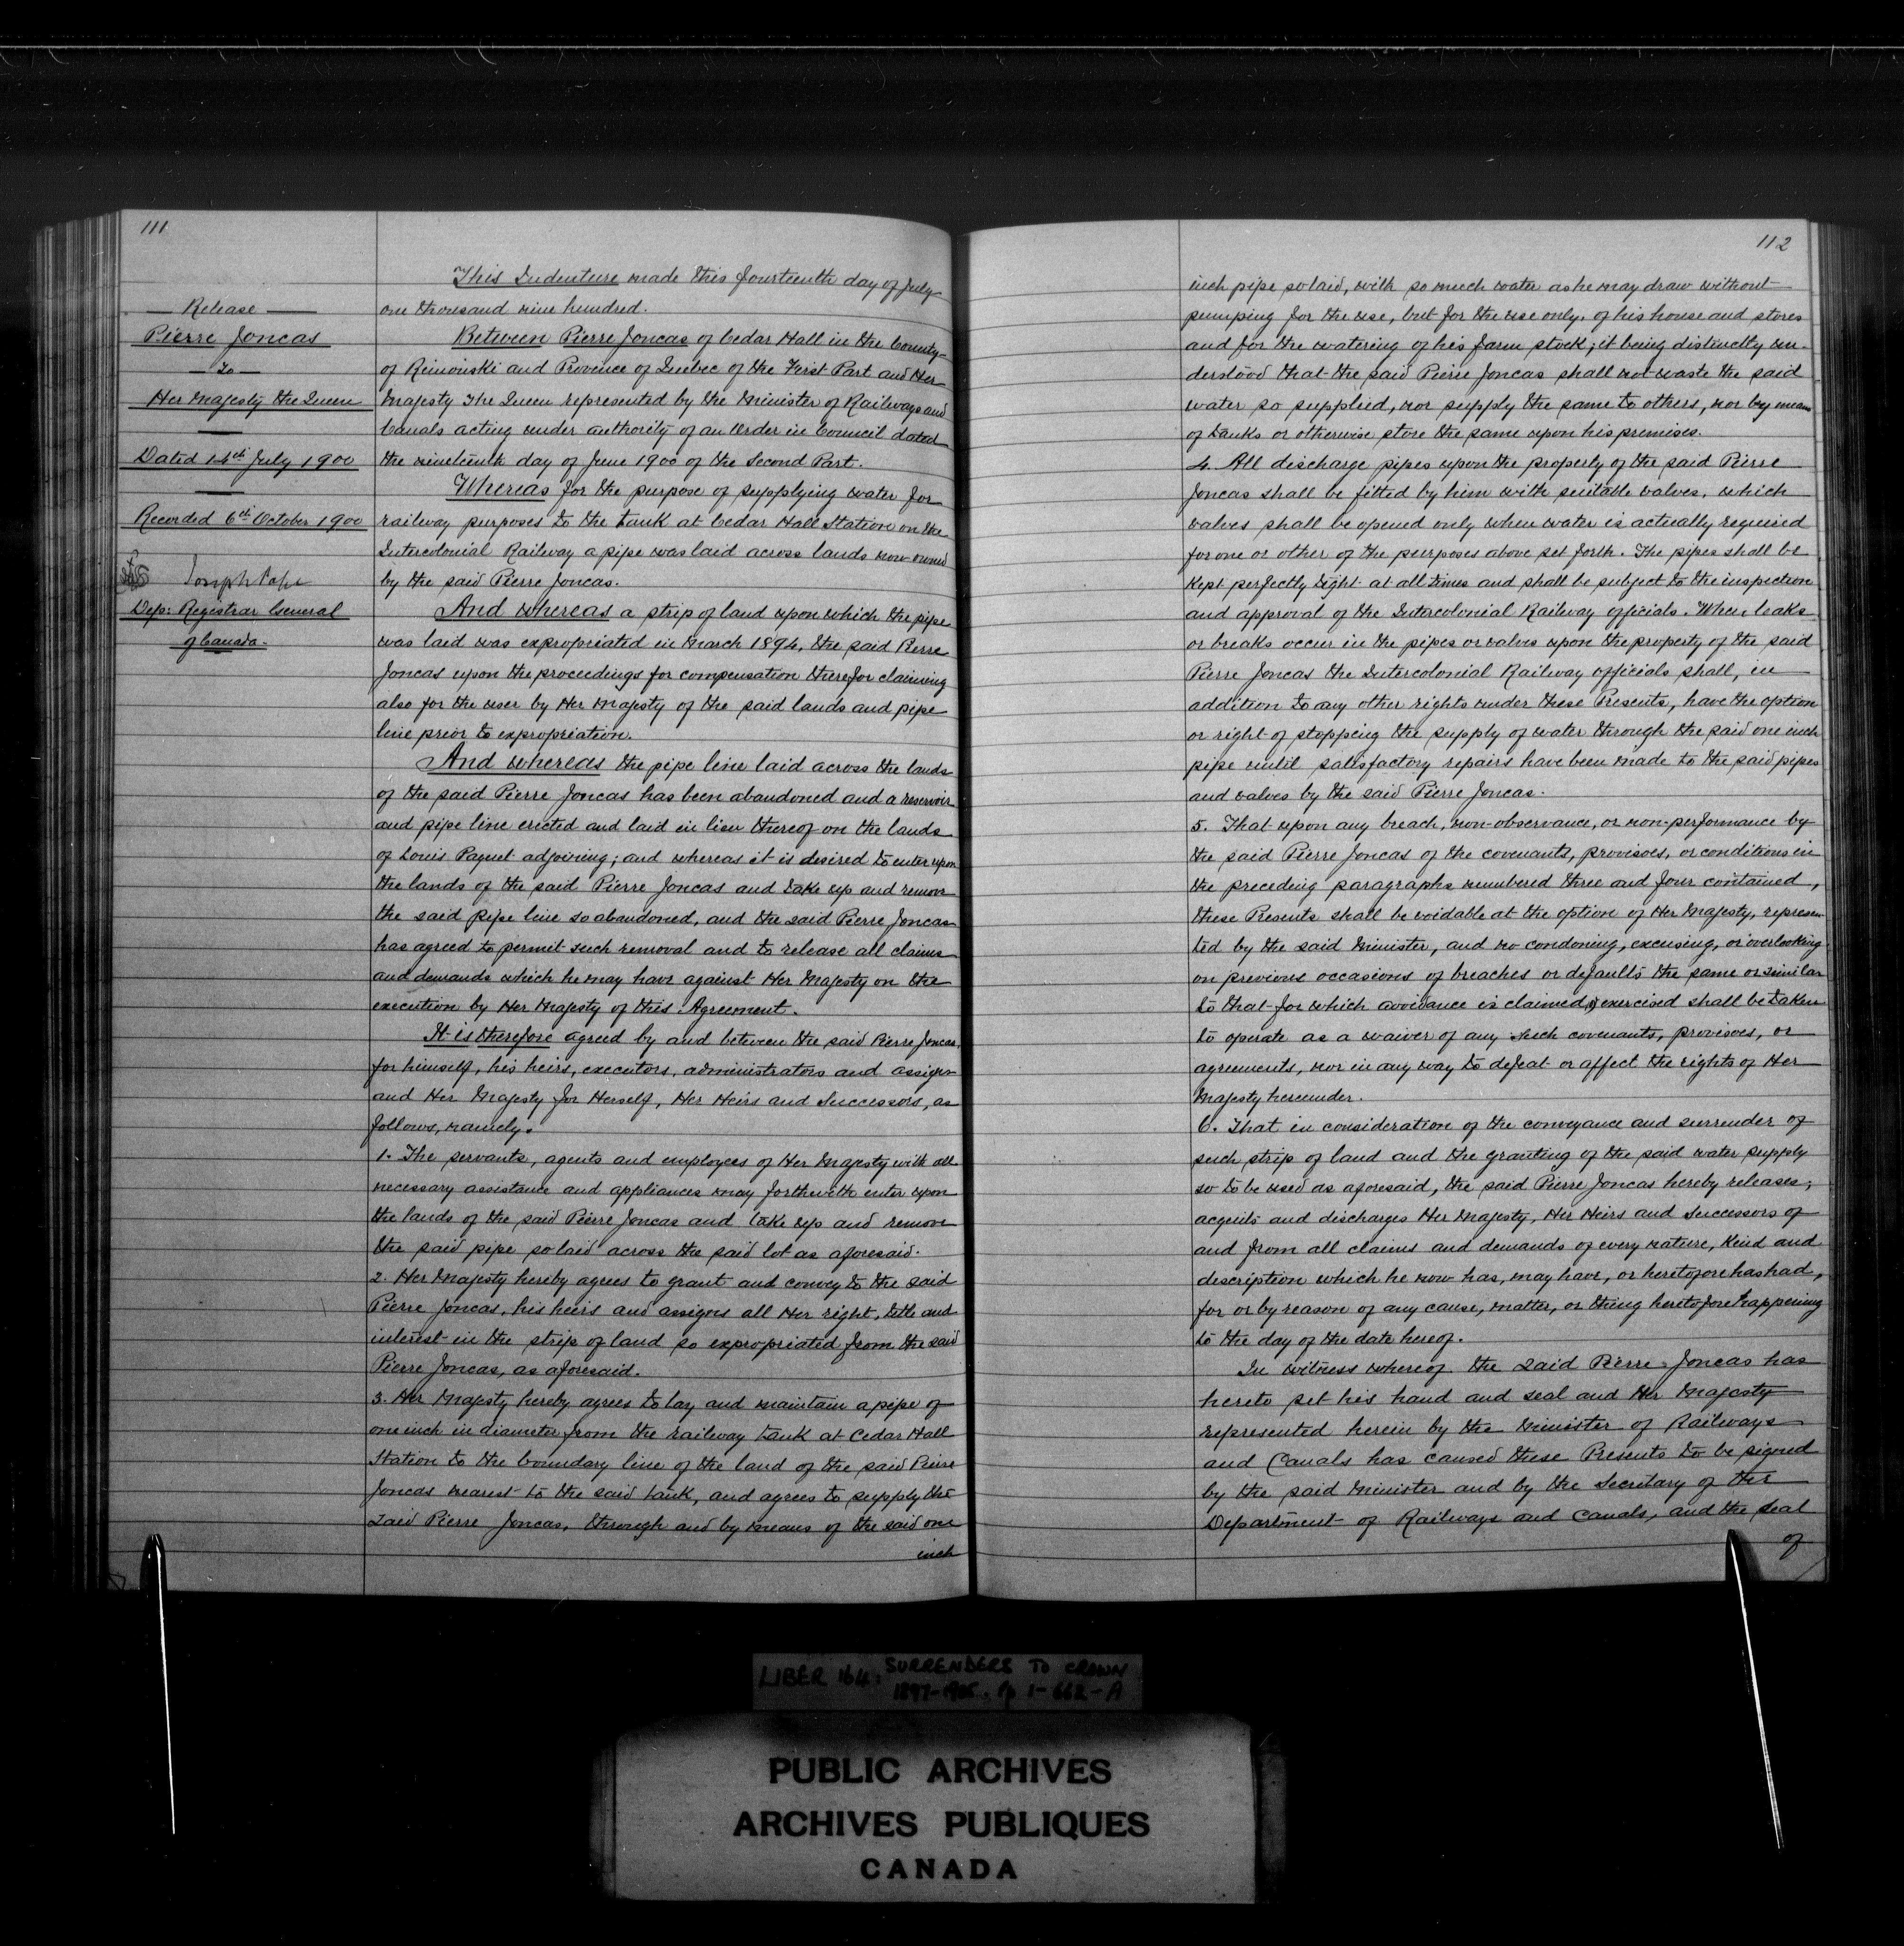 111
Release
Pierre Joncas
to
Her Majesty the Queen
Dated 14th July 1900
Recorded 6th October 1900
Joseph Pope
Dep: Registrar General
of Canada.
This Indenture made this fourteenth day of July
one thousand nine hundred.
Between Pierre Joncas of Cedar Hall in the County
of Rimouski and Province of Quebec of the First Part and Her
Majesty The Queen represented by the Minister of Railways and
Canals acting under authority of an Order in Council dated
the nineteenth day of June 1900 of the Second Part.
Whereas for the purpose of supplying water for
railway purposes to the tank at Cedar Hall Station on the
Intercolonial Railway a pipe was laid across lands now owned
by the said Pierre Joncas.
And whereas a strip of land upon which the pipe
was laid was expropriated in March 1894, the said Pierre
Joncas upon the proceedings for compensation therefor claiming
also for the user by Her Majesty of the said lands and pipe
line prior to expropriation.
And whereas the pipe line laid across the lands
of the said Pierre Joncas has been abandoned and a reservoir
and pipe line erected and laid in lieu thereof on the lands
of Louis Paquet adjoining; and whereas it is desired to enter upon
the lands of the said Pierre Joncas and take up and remove
the said pipe line so abandoned, and the said Pierre Joncas
has agreed to permit such removal and to release all claims
and demands which he may have against Her Majesty on the
execution by Her Majesty of this Agreement.
It is therefore agreed by and between the said Pierre Joncas,
for himself, his heirs, executors, administrators and assigns
and Her Majesty for Herself, Her Heirs and Successors, as
follows, namely.
1. The servants, agents and employees of Her Majesty with all
necessary assistance and appliances may forthwith enter upon
the lands of the said Pierre Joncas and take up and remove
the said pipe so laid across the said lot as aforesaid.
2. Her Majesty hereby agrees to grant and convey to the said
Pierre Joncas, his heirs and assigns all Her right, title and
interest in the strip of land so expropriated from the said
Pierre Joncas, as aforesaid.
3. Her Majesty hereby agrees to lay and maintain a pipe of
one inch in diameter from the railway tank at Cedar Hall
Station to the boundary line of the land of the said Pierre
Joncas nearest to the said tank, and agrees to supply the
said Pierre Joncas, through and by means of the said one
inch
112
inch pipe so laid, with so much water as he may draw without
pumping for the use, but for the use only, of his house and stores
and for the watering of his farm stock; it being distinctly un-
derstood that the said Pierre Joncas shall not waste the said
water so supplied, nor supply the same to others, nor by means
of tanks or otherwise store the same upon his premises.
4. All discharge pipes upon the property of the said Pierre
Joncas shall be fitted by him with suitable valves, which
valves shall be opened only when water is actually required
for one or other of the purposes above set forth. The pipes shall be
kept perfectly tight at all times and shall be subject to the inspection
and approval of the Intercolonial Railway officials. When leaks
or breaks occur in the pipes or valves upon the property of the said
Pierre Joncas the Intercolonial Railway officials shall, in
addition to any other rights under these Presents, have the option
or right of stopping the supply of water through the said one inch
pipe until satisfactory repairs have been made to the said pipes
and valves by the said Pierre Joncas.
5. That upon any breach, non-observance, or non-performance by
the said Pierre Joncas of the covenants, provisoes, or conditions in
the preceding paragraphs numbered three and four contained,
these Presents shall be voidable at the option of Her Majesty, represen-
ted by the said Minister, and no condoning, excusing, or overlooking
on previous occasions of breaches or defaults the same or similar
to that for which avoidance is claimed or exercised shall be taken
to operate as a waiver of any such covenants, provisoes, or
agreements, nor in any way to defeat or affect the rights of Her
Majesty hereunder.
6. That in consideration of the conveyance and surrender of
such strip of land and the granting of the said water supply
so to be used as aforesaid, the said Pierre Joncas hereby releases,
acquits and discharges Her Majesty, Her Heirs and Successors of
and from all claims and demands of every nature, kind and
description which he now has, may have, or heretofore has had,
for or by reason of any cause, matter, or thing heretofore happening
to the day of the date hereof.
In witness whereof the said Pierre Joncas has
hereto set his hand and seal and Her Majesty
represented herein by the Minister of Railways
and Canals has caused these Presents to be signed
by the said Minister and by the Secretary of the
Department of Railways and Canals, and the seal
of
LIBER 164: SURRENDERS TO CROWN
1897-1905. pp 1-662-A
PUBLIC ARCHIVES
ARCHIVES PUBLIQUES
CANADA